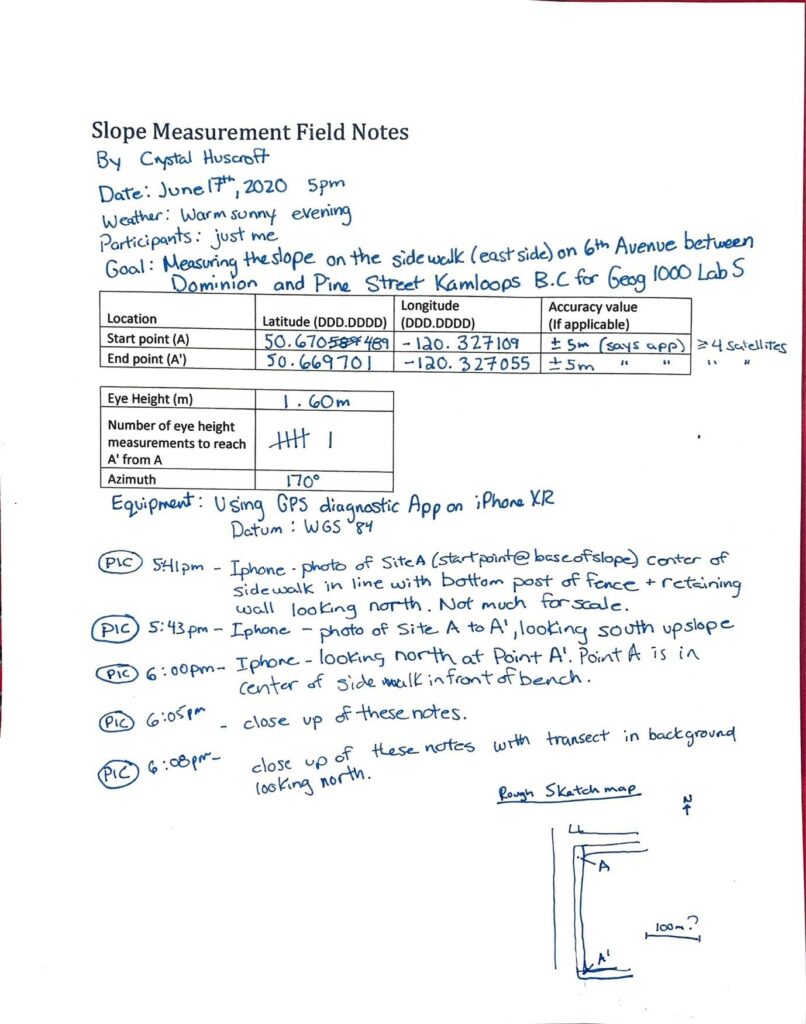 Slope Measurement Field Notes
By Crystal Huscroft
Date: June 17th, 2020 5pm
Weather: Warm sunny evening
Participants: just me
Goal: Measuring the slope on the sidewalk (east side) on 6th Avenue between
Dominion and Pine Street Kamloops B.C for Geog 1000 Lab 5
Location Latitude (DDD.DDDD) Longitude (DDD.DDDD) Accuracy value (If applicable)
Start point (A) 50.670 489 -120.327109 ± 5m (says app) ≥4 satellites
End point (A') 50.669701 -120.327055 ± 5m " " " "
Eye Height (m) 1.60m
Number of eye height
measurements to reach
A' from A 卌 |
Azimuth 170°
Equipment: Using GPS diagnostic App on iPhone XR
Datum: WGS '84
PIC 5:41pm - Iphone - photo of Site A (start point @ base of slope) center of
sidewalk in line with bottom post of fence + retaining
wall looking north. Not much for scale.
PIC 5:43pm - Iphone - photo of Site A to A', looking south upslope
PIC 6:00pm - Iphone - looking north at Point A'. Point A is in
center of side walk in front of bench.
PIC 6:05pm - close up of these notes.
PIC 6:08pm - close up of these notes with transect in background
looking north.
Rough Sketch map
N
A
100m?
A'